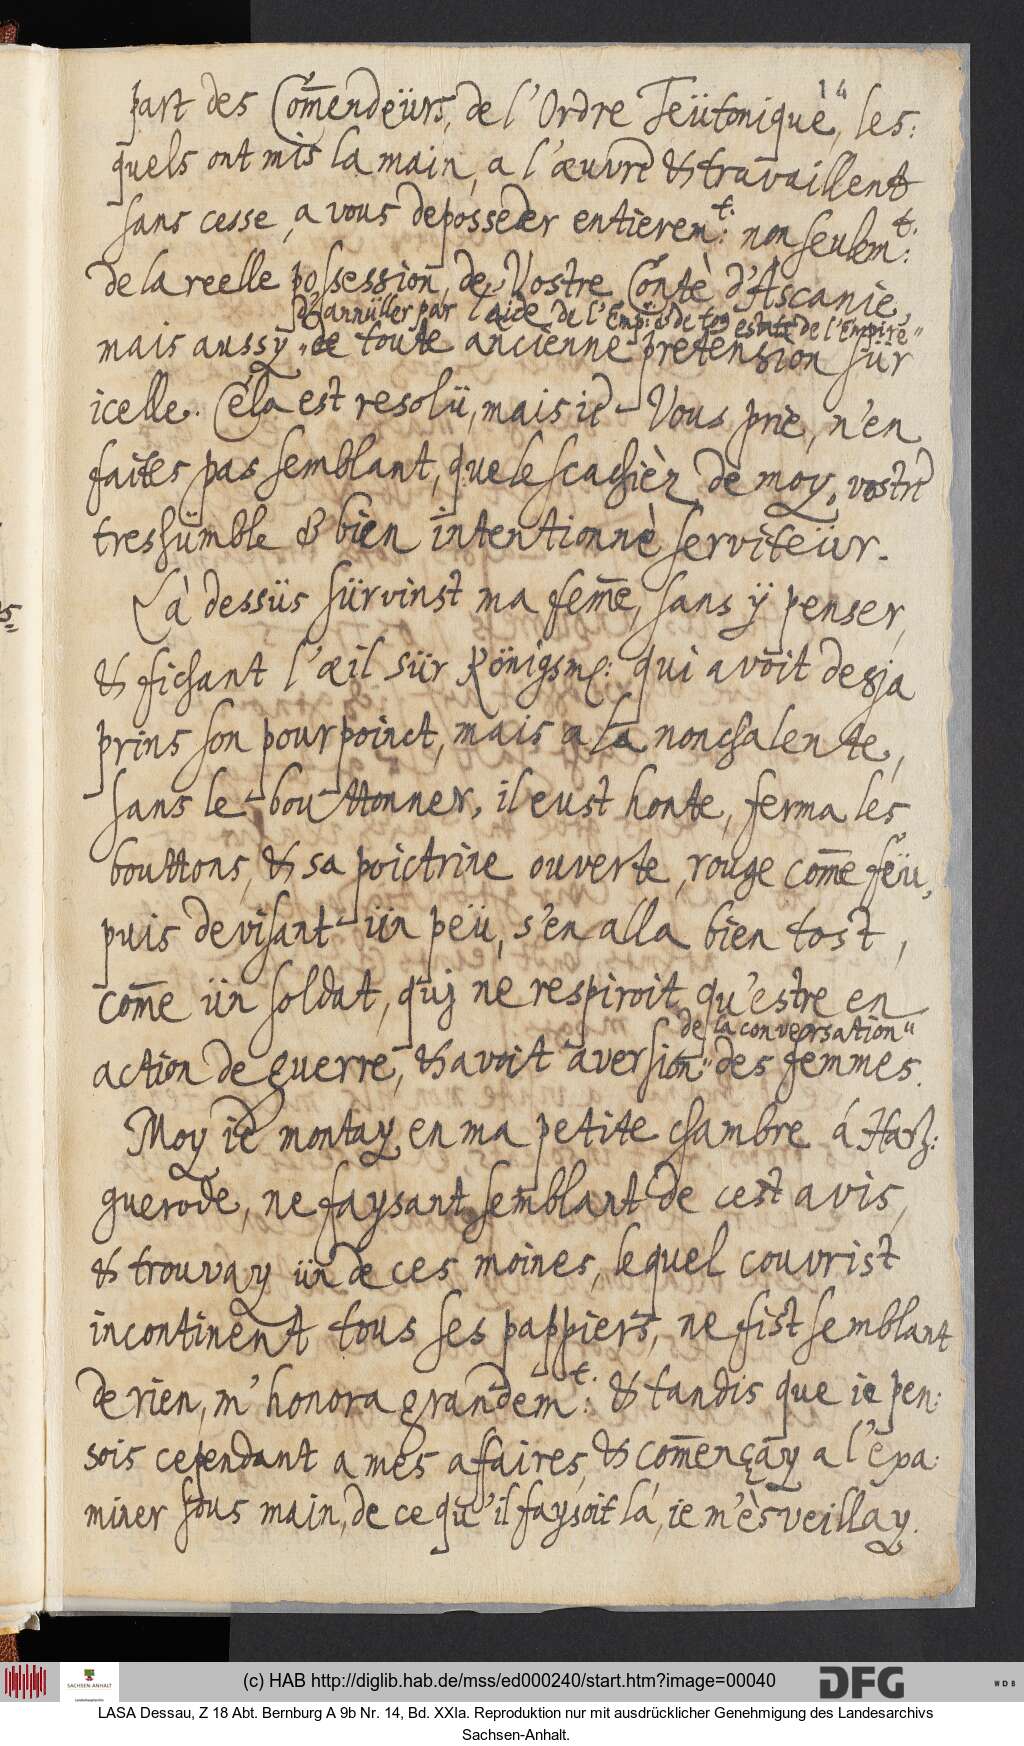 14
part des Com̃endeürs, de l'Ordre Teütonique, les:
quels ont mis la main, a l'œuvre & travaillent
sans cesse, a vous deposseder entierem̃t: non seulem̃t:
de la reelle possession, de Vostre Conté d'Ascanie,
d'annüller par l'aide de l'Emp: & de tos estats de l'Empire"
mais aussy " de toute ancienne pretension sür
icelle. Cela est resolü, mais ie Vous prie, n'en
faites pas semblant, que le scachièz de moy, vostre
treshümble & bien intentionnè serviteür.
Là dessüs sürvinst ma fem̃e, sans ÿ penser,
& fichant l'œil sür Königsm̃: qui avoit desja
prins son pourpoinct, mais a la nonchalente,
sans le bouttonner, il eust honte, ferma les
bouttons, & sa poictrine ouverte, rouge com̃e feü,
puis devisant ün peü, s'en alla bien tost,
com̃e ün soldat, quj ne respiroit qu'estre en
de la conversation"
action de guerre, & avoit aversion" des femmes.
Moy ie montay en ma petite chambre á Hatz:
guerode, ne faysant semblant de cest avis,
& trouvay ün de ces moines, lequel couvrist
incontinent tous ses pappiers, ne fist semblant
de rien, m'honora grandem̃t: & tandis que ie pen:
sois cependant a mes affaires, & com̃ençay a l'exa:
miner sous main, de ce qu'il faysoit là, ie m'èsveillay.
(c) HAB http://diglib.hab.de/mss/ed000240/start.htm?image=00040
SACHSEN-ANHALT
DFG
WDB
LASA Dessau, Z 18 Abt. Bernburg A 9b Nr. 14, Bd. XXIa. Reproduktion nur mit ausdrücklicher Genehmigung des Landesarchivs
Sachsen-Anhalt.